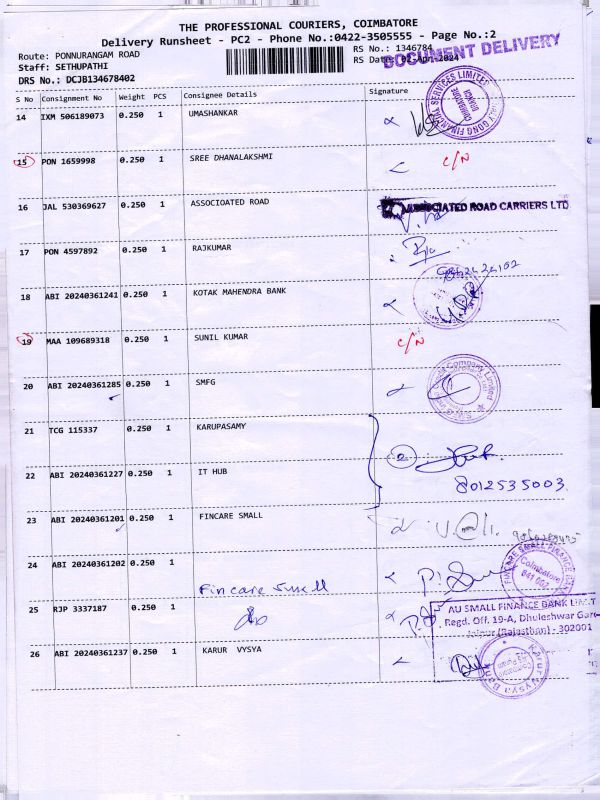 THE PROFESSIONAL COURIERS, COIMBATORE
Delivery Runsheet - PC2 - Phone No.:0422-3505555 - Page No.:2
Route: PONNURANGAM ROAD
RS No.: 1346784
Staff: SETHUPATHI
RS Date: 02-Apr-2024
DOCUMENT DELIVERY
DRS No.: DCJB134678402
S No Consignment No Weight PCS Consignee Details Signature
14 IXM 506189073 0.250 1 UMASHANKAR
FINANCIAL SERVICES LIMITED
COIMBATORE BRANCH
15 PON 1659998 0.250 1 SREE DHANALAKSHMI C/N
16 JAL 530369627 0.250 1 ASSOCIOATED ROAD
ASSOCIATED ROAD CARRIERS LTD
17 PON 4597892 0.250 1 RAJKUMAR
18 ABI 20240361241 0.250 1 KOTAK MAHENDRA BANK
19 MAA 109689318 0.250 1 SUNIL KUMAR C/N
20 ABI 20240361285 0.250 1 SMFG
Company Limited
21 TCG 115337 0.250 1 KARUPASAMY
22 ABI 20240361227 0.250 1 IT HUB
8012535003
23 ABI 20240361201 0.250 1 FINCARE SMALL
24 ABI 20240361202 0.250 1
Fincare Small
FINCARE SMALL FINANCE BANK
Coimbatore
641 002
25 RJP 3337187 0.250 1
AU SMALL FINANCE BANK LIMIT
Regd. Off. 19-A, Dhuleshwar Gard
Jaipur (Rajasthan) - 302001
26 ABI 20240361237 0.250 1 KARUR VYSYA
Karur Vysya Bank